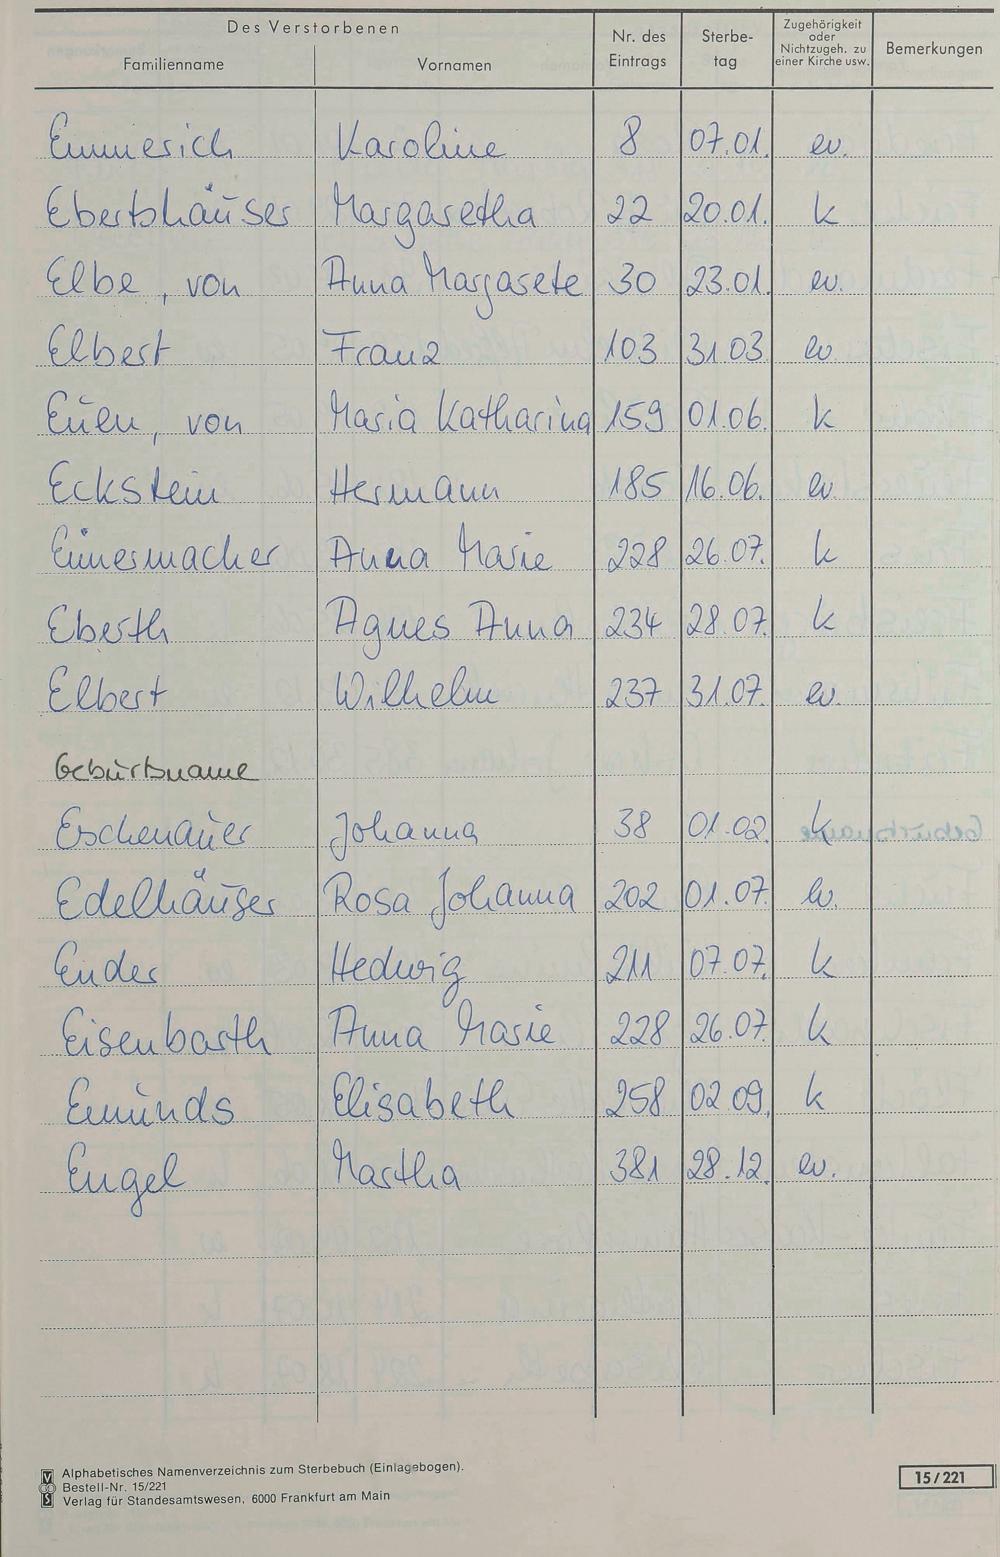 Des Verstorbenen
Familienname Vornamen Nr. des Eintrags Sterbe-tag Zugehörigkeit oder Nichtzugeh. zu einer Kirche usw. Bemerkungen
Emmerich Karoline 8 07.01. ev.
Ebertshäuser Margaretha 22 20.01. k
Elbe, von Anna Margarete 30 23.01. ev.
Elbert Franz 103 31.03. ev
Euen, von Maria Katharina 159 01.06. k
Eckstein Hermann 185 16.06. ev.
Eimermacher Anna Marie 228 26.07. k
Eberth Agnes Anna 234 28.07. k
Elbert Wilhelm 237 31.07. ev.
Geburtsname
Eschenauer Johanna 38 01.02. k
Edelhäuser Rosa Johanna 202 01.07. ev.
Ender Hedwig 211 07.07. k
Eisenbarth Anna Marie 228 26.07. k
Emunds Elisabeth 258 02.09. k
Engel Martha 381 28.12. ev.
Alphabetisches Namenverzeichnis zum Sterbebuch (Einlagebogen).
Bestell-Nr. 15/221
Verlag für Standesamtswesen, 6000 Frankfurt am Main
15/221